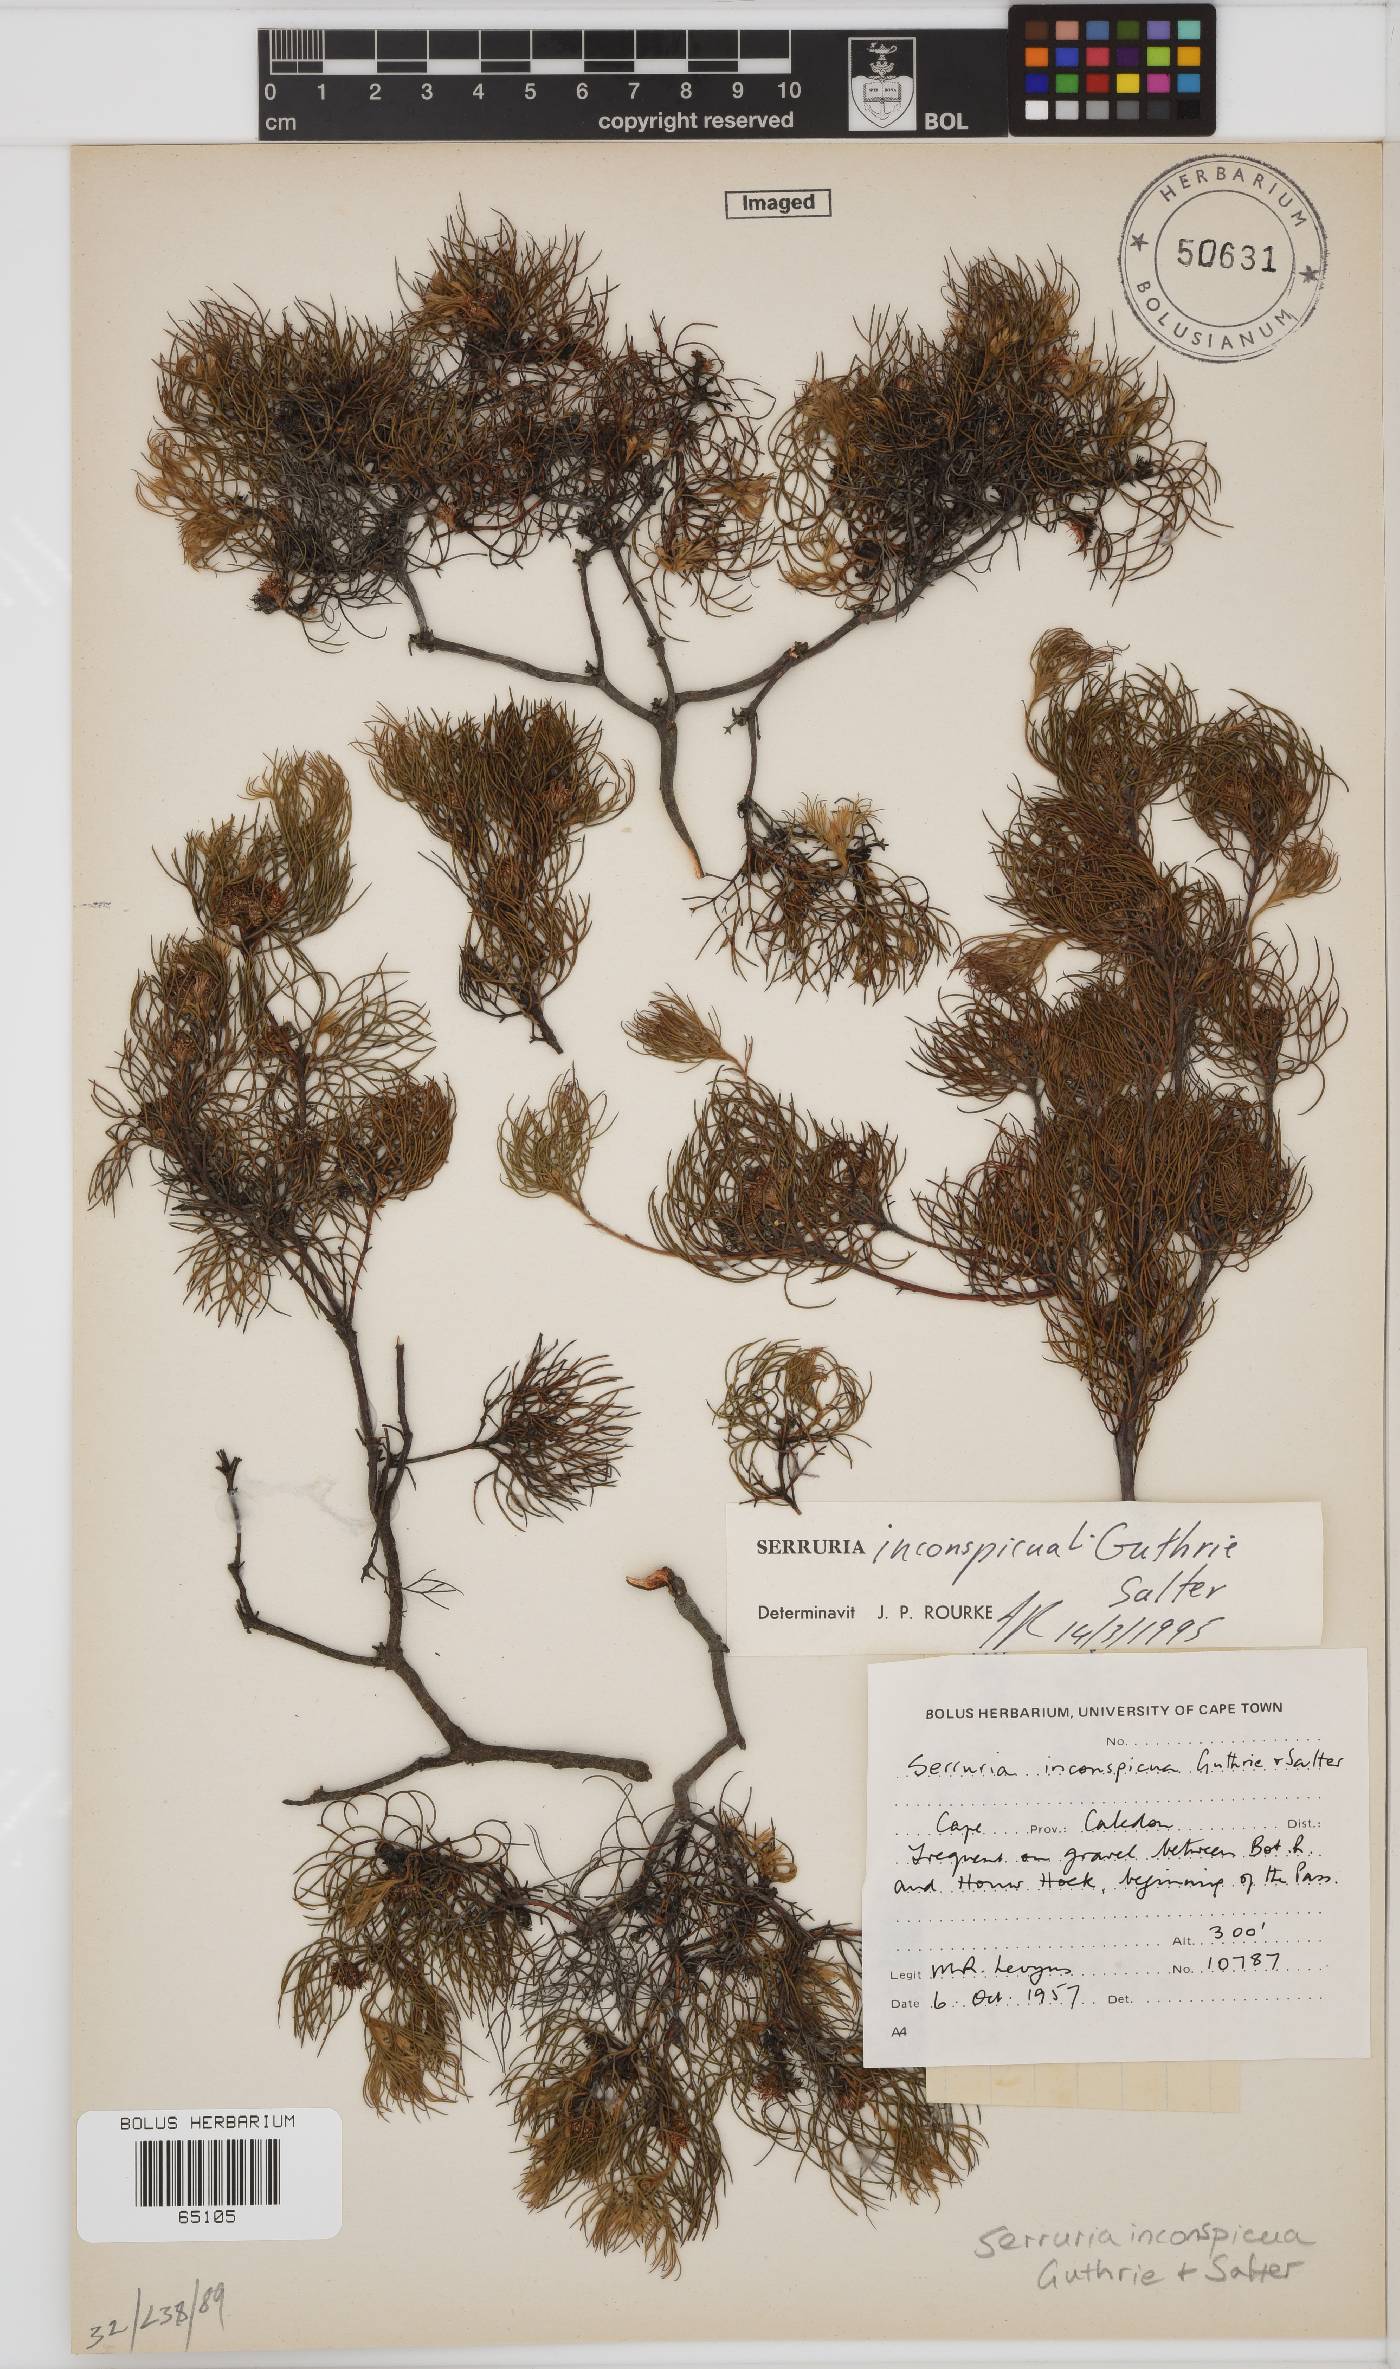 0 1 2 3 4 5 6 7 8 9 10
cm copyright reserved BOL
Imaged
HERBARIUM
50631
BOLUSIANUM
SERRURIA inconspicua L. Guthrie
Salter
Determinavit J. P. ROURKE JPR 14/3/1995
BOLUS HERBARIUM, UNIVERSITY OF CAPE TOWN
No.
Serruria inconspicua Guthrie & Salter
Cape Prov.: Caledon Dist.:
Frequent on gravel between Bot R.
and Houw Hoek, beginning of the Pass.
Alt. 300'
Legit M.R. Levyns No. 10787
Date 6 Oct. 1957 Det.
A4
BOLUS HERBARIUM
65105
Serruria inconspicua
Guthrie & Salter
32/238/89